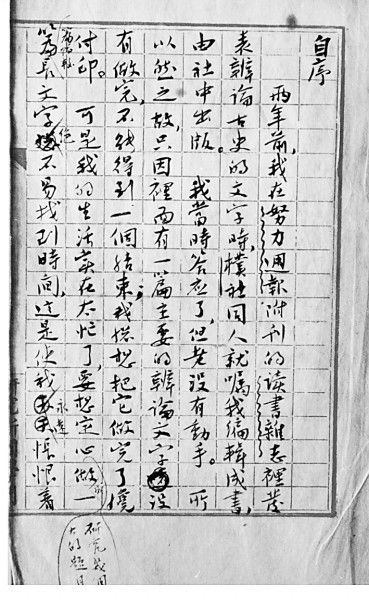 自序
兩年前，我在努力週報附刊的读書雜志裡發
表辨論古史的文字時，樸社同人就囑我编輯成書，
由社中出版。我當時答應了，但老没有動手。所
以然之故，只因裡面有一篇主要的辨論文字没
有做完，不能得到一個結束；我總想把它做完了纔
付印。可是我的生活实在太忙了，要想定心做一
篇長文字絶不易找到時間，這是使我永遠悵恨着